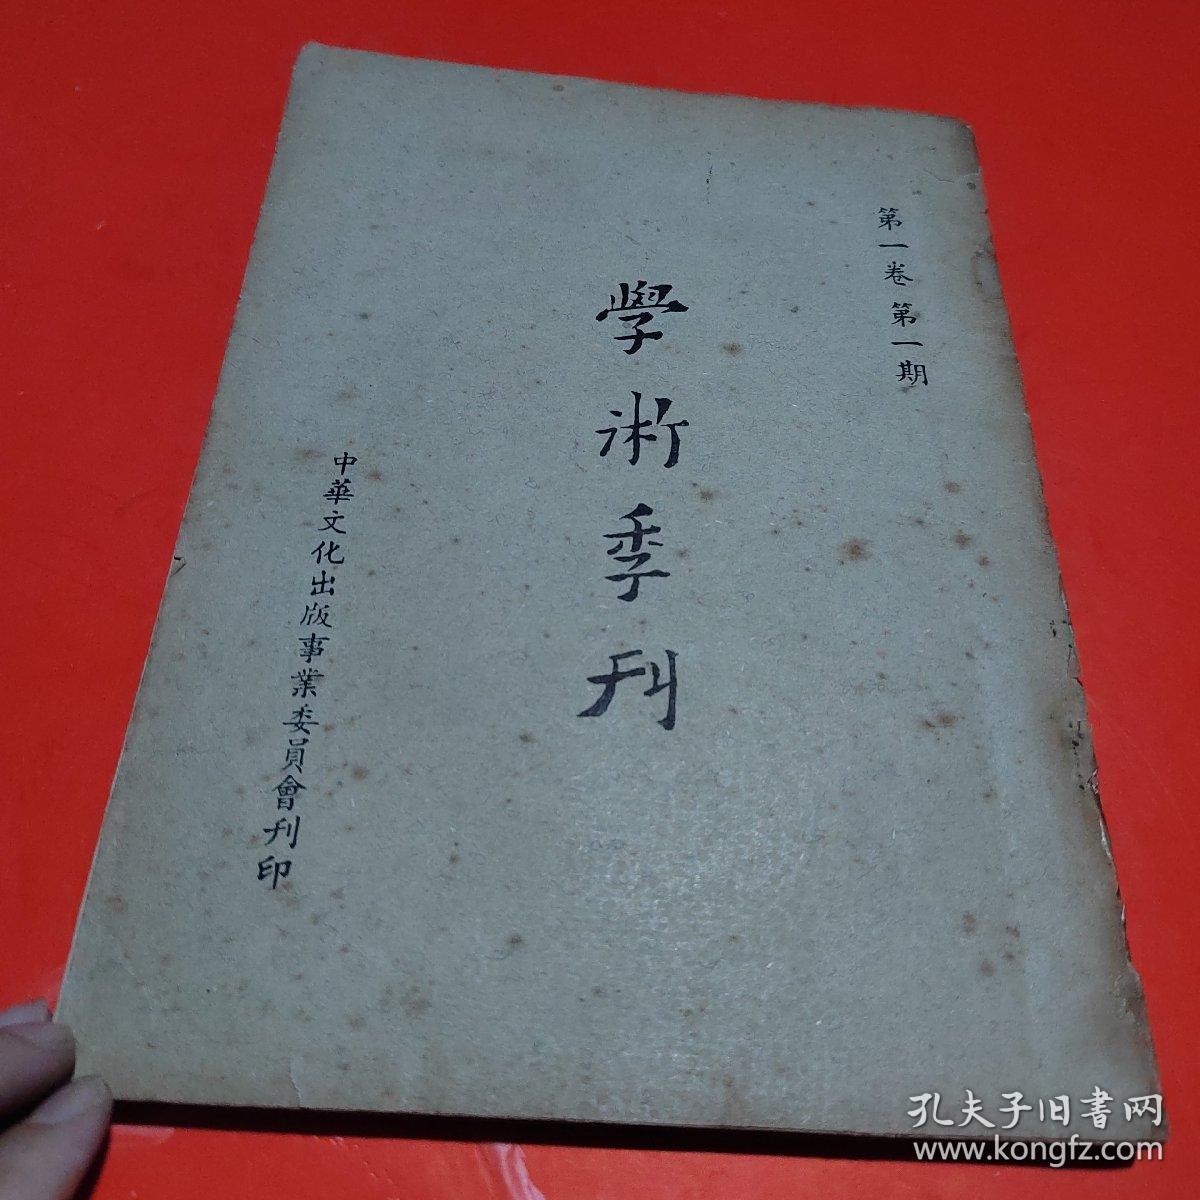 第一卷第一期
學術季刊
中華文化出版事業委員會刊印
孔夫子旧書网
www.kongfz.com